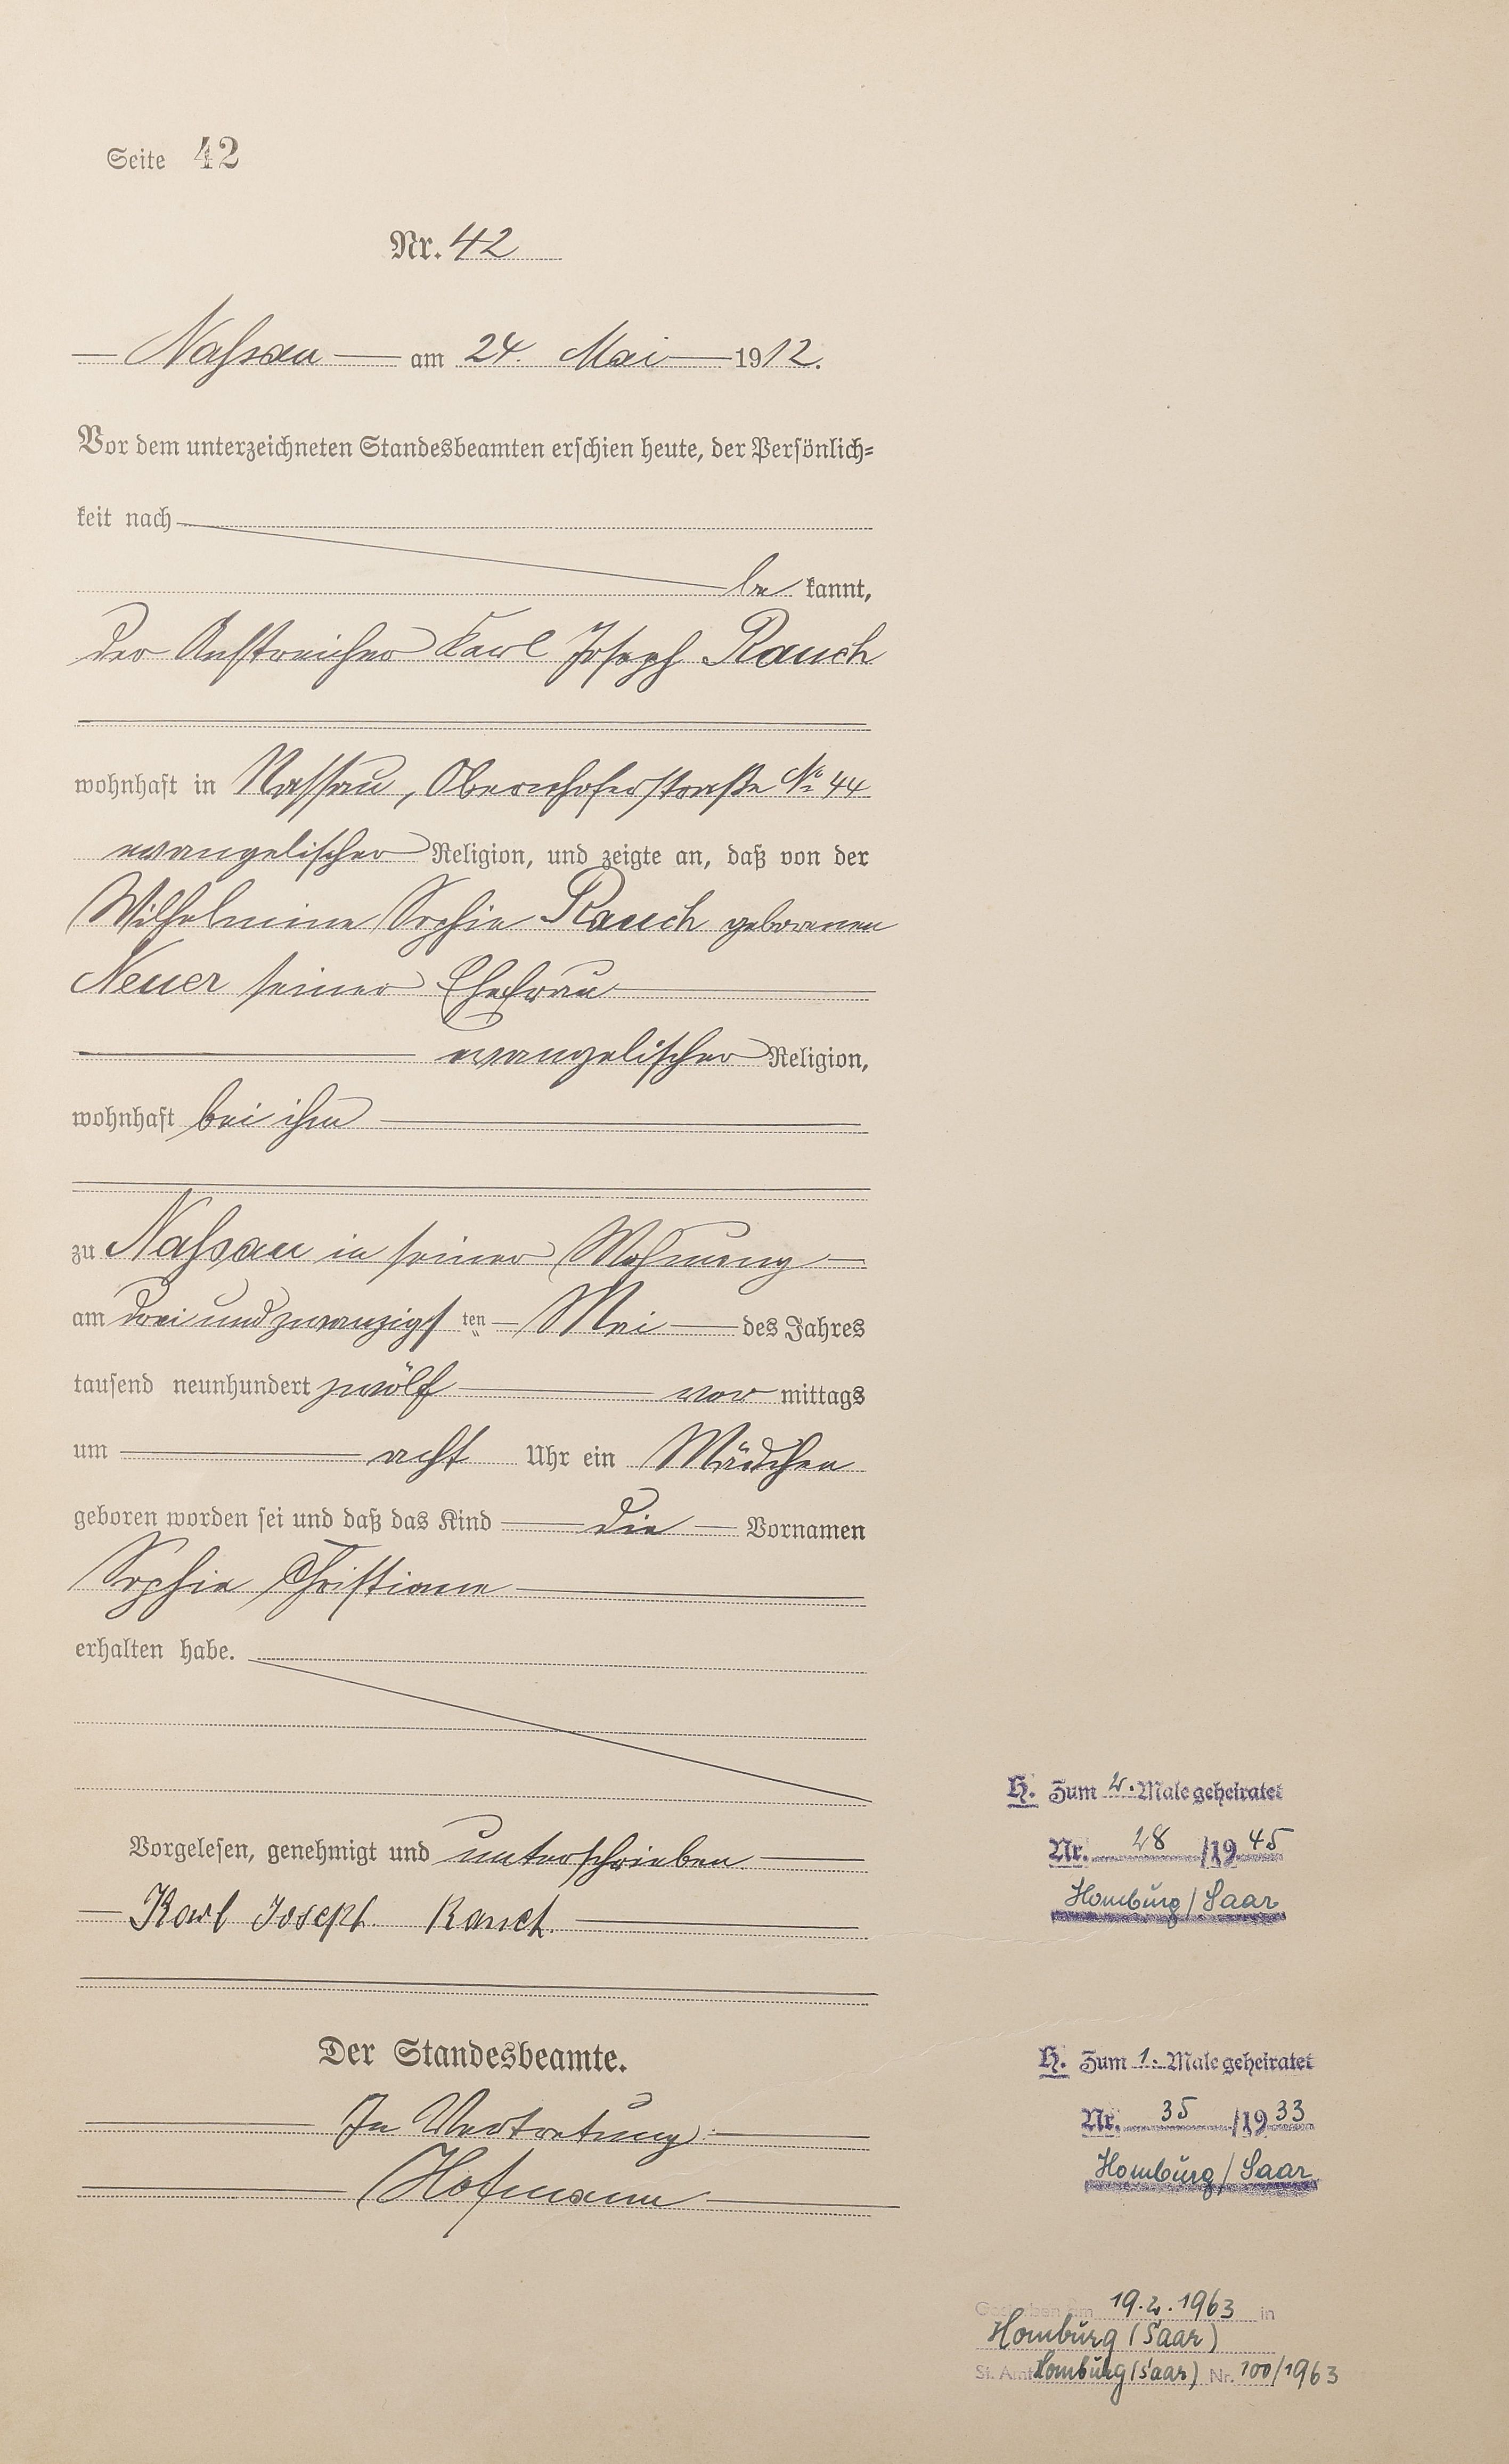 Seite 42
Nr. 42
Nassau am 24. Mai 1912.
Vor dem unterzeichneten Standesbeamten erschien heute, der Persönlich=
keit nach
be kannt,
der Anstreicher Karl Joseph Rauch
wohnhaft in Nassau, Obernhoferstraße No 44
evangelischer Religion, und zeigte an, daß von der
Wilhelmine Sophie Rauch geborenen
Neuer seiner Ehefrau
evangelischer Religion,
wohnhaft bei ihm
zu Nassau in seiner Wohnung
am drei und zwanzigsten Mai des Jahres
tausend neunhundert zwölf vor mittags
um acht Uhr ein Mädchen
geboren worden sei und daß das Kind die Vornamen
Sophie Christiane
erhalten habe.
Vorgelesen, genehmigt und unterschrieben
Karl Joseph Rauch.
Der Standesbeamte.
In Vertretung:
Hofmann
H. Zum 2. Male geheiratet
Nr. 28 /1945
Homburg/Saar
H. Zum 1. Male geheiratet
Nr. 35 /1933
Homburg/Saar
Gestorben am 19.2.1963 in
Homburg (Saar)
St. Amt Homburg (Saar) Nr. 100/1963